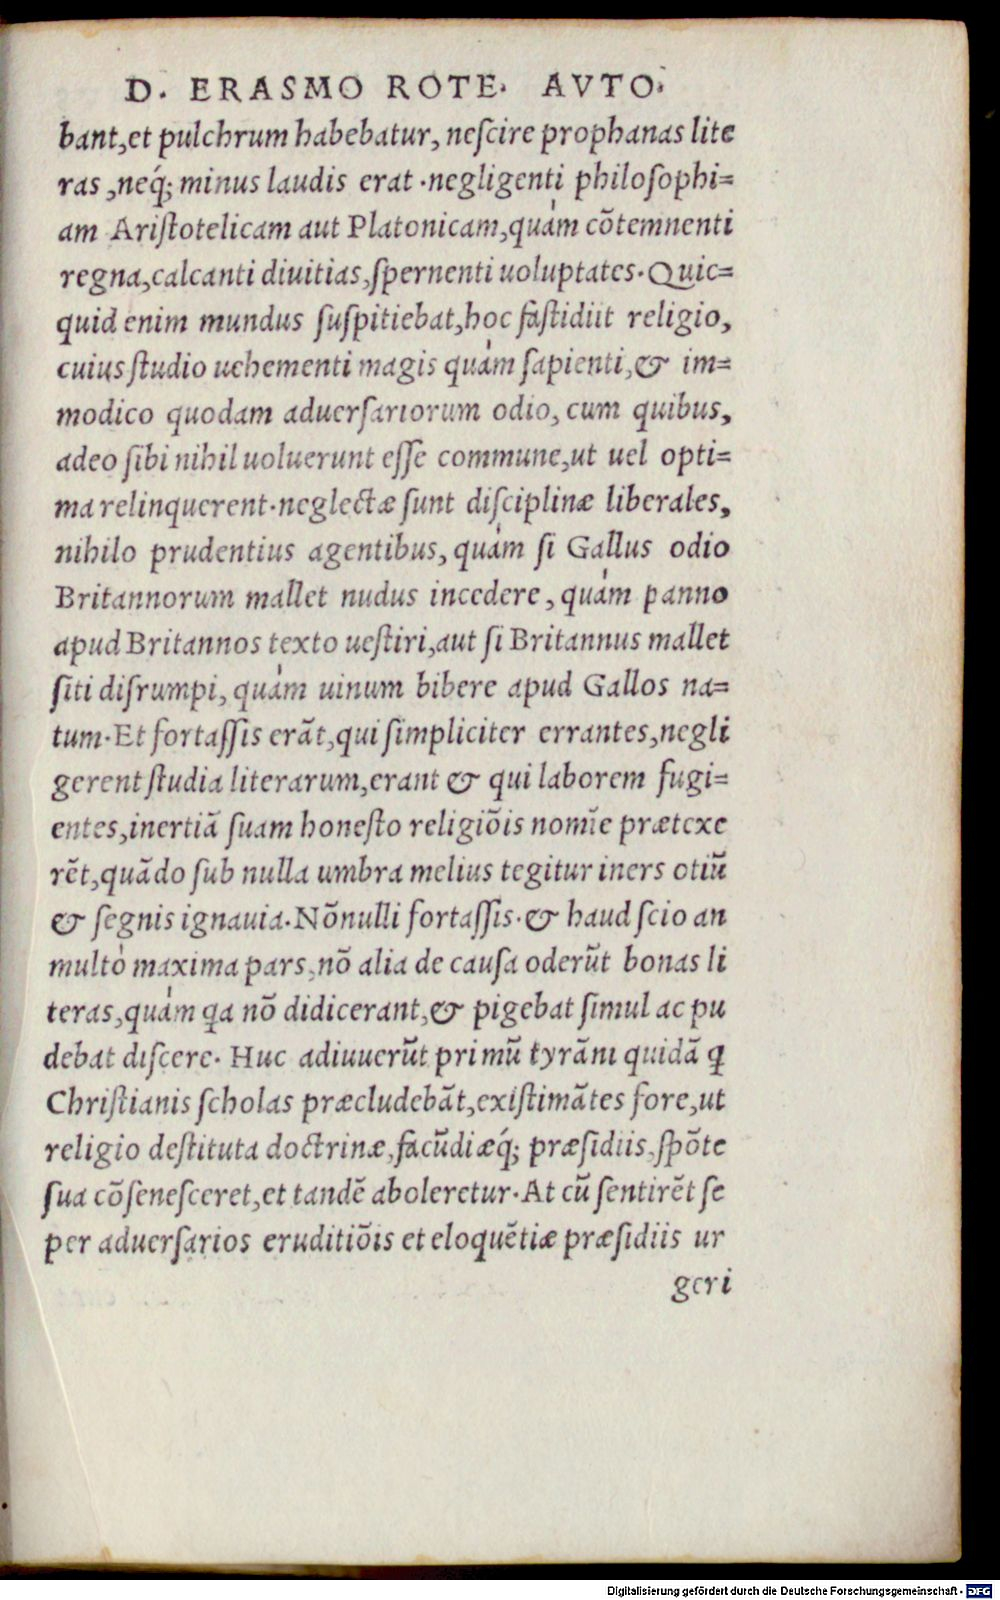 D. ERASMO ROTE. AVTO.
bant,et pulchrum habebatur, neſcire prophanas lite
ras ,neq́; minus laudis erat .negligenti philoſophi=
am Ariſtotelicam aut Platonicam,quàm cõtemnenti
regna,calcanti diuitias,ſpernenti uoluptates. Quic=
quid enim mundus ſuſpitiebat,hoc faſtidiit religio,
cuius ſtudio uehementi magis quàm ſapienti,& im=
modico quodam aduerſariorum odio, cum quibus,
adeo ſibi nihil uoluerunt eſſe commune,ut uel opti=
ma relinquerent.neglectæ ſunt diſciplinæ liberales,
nihilo prudentius agentibus, quàm ſi Gallus odio
Britannorum mallet nudus incedere, quàm panno
apud Britannos texto ueſtiri,aut ſi Britannus mallet
ſiti diſrumpi, quàm uinum bibere apud Gallos na=
tum. Et fortaſſis erãt,qui ſimpliciter errantes,negli
gerent ſtudia literarum,erant & qui laborem fugi=
entes,inertiã ſuam honeſto religiõis nomĩe prætexe
rẽt,quãdo ſub nulla umbra melius tegitur iners otiũ
& ſegnis ignauia. Nõnulli fortaſſis. & haud ſcio an
multò maxima pars,nõ alia de cauſa oderũt bonas li
teras,quàm qa nõ didicerant,& pigebat ſimul ac pu
debat diſcere. Huc adiuuerũt primũ tyrãni quidã q
Chriſtianis ſcholas præcludebãt,exiſtimãtes fore,ut
religio deſtituta doctrinæ,facũdiæq́; præſidiis,ſpõte
ſua cõſeneſceret,et tandẽ aboleretur. At cũ ſentirẽt ſe
per aduerſarios eruditiõis et eloquẽtiæ præſidiis ur
geri
Digitalisierung gefördert durch die Deutsche Forschungsgemeinschaft - DFG